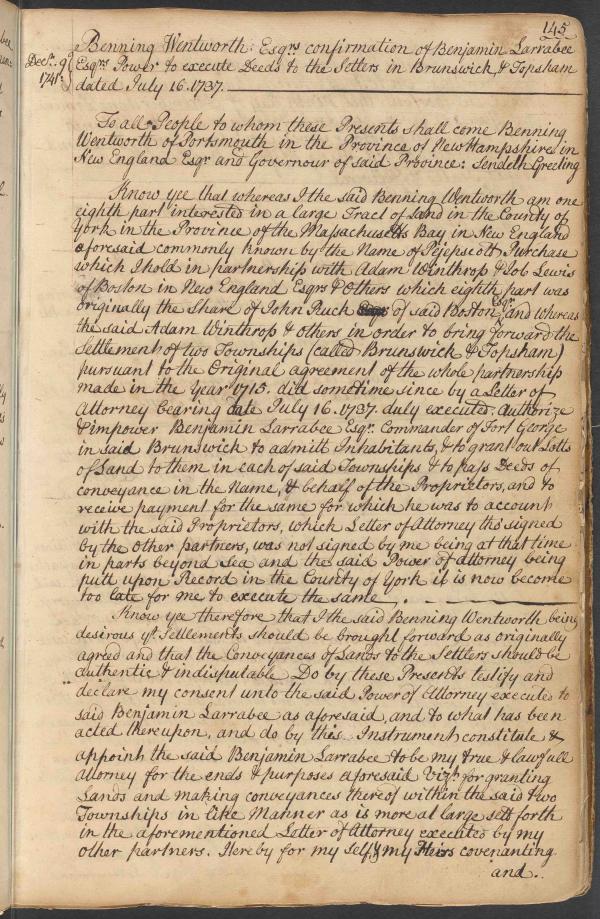 145
Decr. 9
1741.
Benning Wentworth: Esqrs confirmation of Benjamin Larrabee
Esqrs Power to execute Deeds to the Setlers in Brunswick, & Topsham
dated July 16. 1737.
To all People to whom these Presents shall come Benning
Wentworth of Portsmouth in the Province of New Hampsshire in
New England Esqr and Governour of said Province: Sendeth Greeting
Know yee that whereas I the said Benning Wentworth am one
eighth part interested in a large Tract of Land in the County of
York in the Province of the Massachusetts Bay in New England
aforesaid commonly known by the Name of Pejepscott Purchase
which I hold in partnership with Adam Winthrop & Job Lewis
of Boston in New England Esqrs & Others which eighth part was
originally the Share of John Ruck of said Boston Esqr. and whereas
the said Adam Winthrop & others in order to bring forward the
Settlement of two Townships (called Brunswick & Topsham)
pursuant to the Original agreement of the whole partnership
made in the Year 1715. did sometime since by a Letter of
Attorney bearing date July 16. 1737. duly executed. authorize
& impower Benjamin Larrabee Esqr. Commander of Fort George
in said Brunswick to admitt Inhabitants, & to grant out Lotts
of Land to them in each of said Townships & to pass Deeds of
conveyance in the Name, & behalf of the Proprietors, and to
receive payment for the same for which he was to account
with the said Proprietors, which Letter of Attorney tho signed
by the other partners, was not signed by me being at that time
in parts beyond Sea and the said Power of attorney being
putt upon Record in the County of York it is now become
too late for me to execute the same
Know yee therefore that I the said Benning Wentworth being
desirous yt Settlements should be brought forward as originally
agreed and that the Conveyances of Lands to the Settlers should be
authentic & indisputable Do by these Presents testify and
declare my consent unto the said Power of Attorney executed to
said Benjamin Larrabee as aforesaid, and to what has been
acted thereupon, and do by this Instrument constitute &
appoint the said Benjamin Larrabee to be my true & lawfull
attorney for the ends & purposes aforesaid Vizt. for granting
Lands and making conveyances thereof within the said two
Townships in like Manner as is more at large sett forth
in the aforementioned Letter of Attorney executed by my
other partners. Hereby for my self & my Heirs covenanting
and..